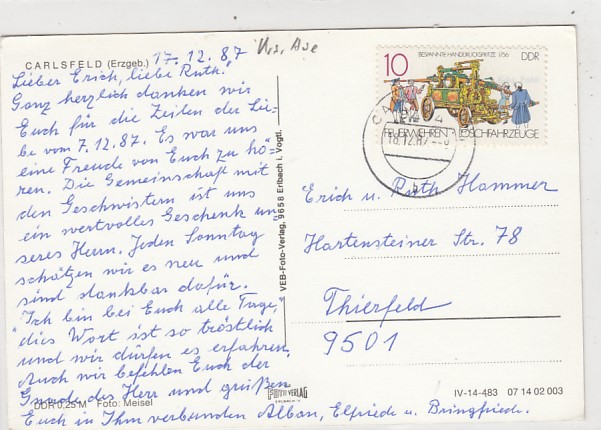 CARLSFELD (Erzgeb.)
17.12.87
Lieber Erich, liebe Ruth!
Ganz herzlich danken wir
Euch für die Zeilen der Lie-
be vom 7.12.87. Es war uns
eine Freude von Euch zu hö-
ren. Die Gemeinschaft mit
den Geschwistern ist uns
ein wertvolles Geschenk un-
seres Herrn. Jeden Sonntag
schätzen wir es neu und
sind dankbar dafür.
"Ich bin bei Euch alle Tage,"
dies Wort ist so tröstlich
und wir dürfen es erfahren.
Auch wir befehlen Euch der
Gnade des Herr und grüßen
Euch in Ihm verbunden Alban, Elfriede u. Bringfriede.
DDR 0,25 M Foto: Meisel
VEB-Foto-Verlag, 9658 Erlbach i. Vogtl.
BESPANNTE HANDDRUCKSPRITZE 1756
DDR
10
FEUERWEHREN · LÖSCHFAHRZEUGE
18.12.87
Erich u. Ruth Hammer
Hartensteiner Str. 78
Thierfeld
9501
FOTO VERLAG
ERLBACH V.
IV-14-483 07 14 02 003